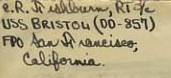 C.R. Fishburn, RT 3/c
USS BRISTOL (DD-857)
FPO San Francisco,
California.